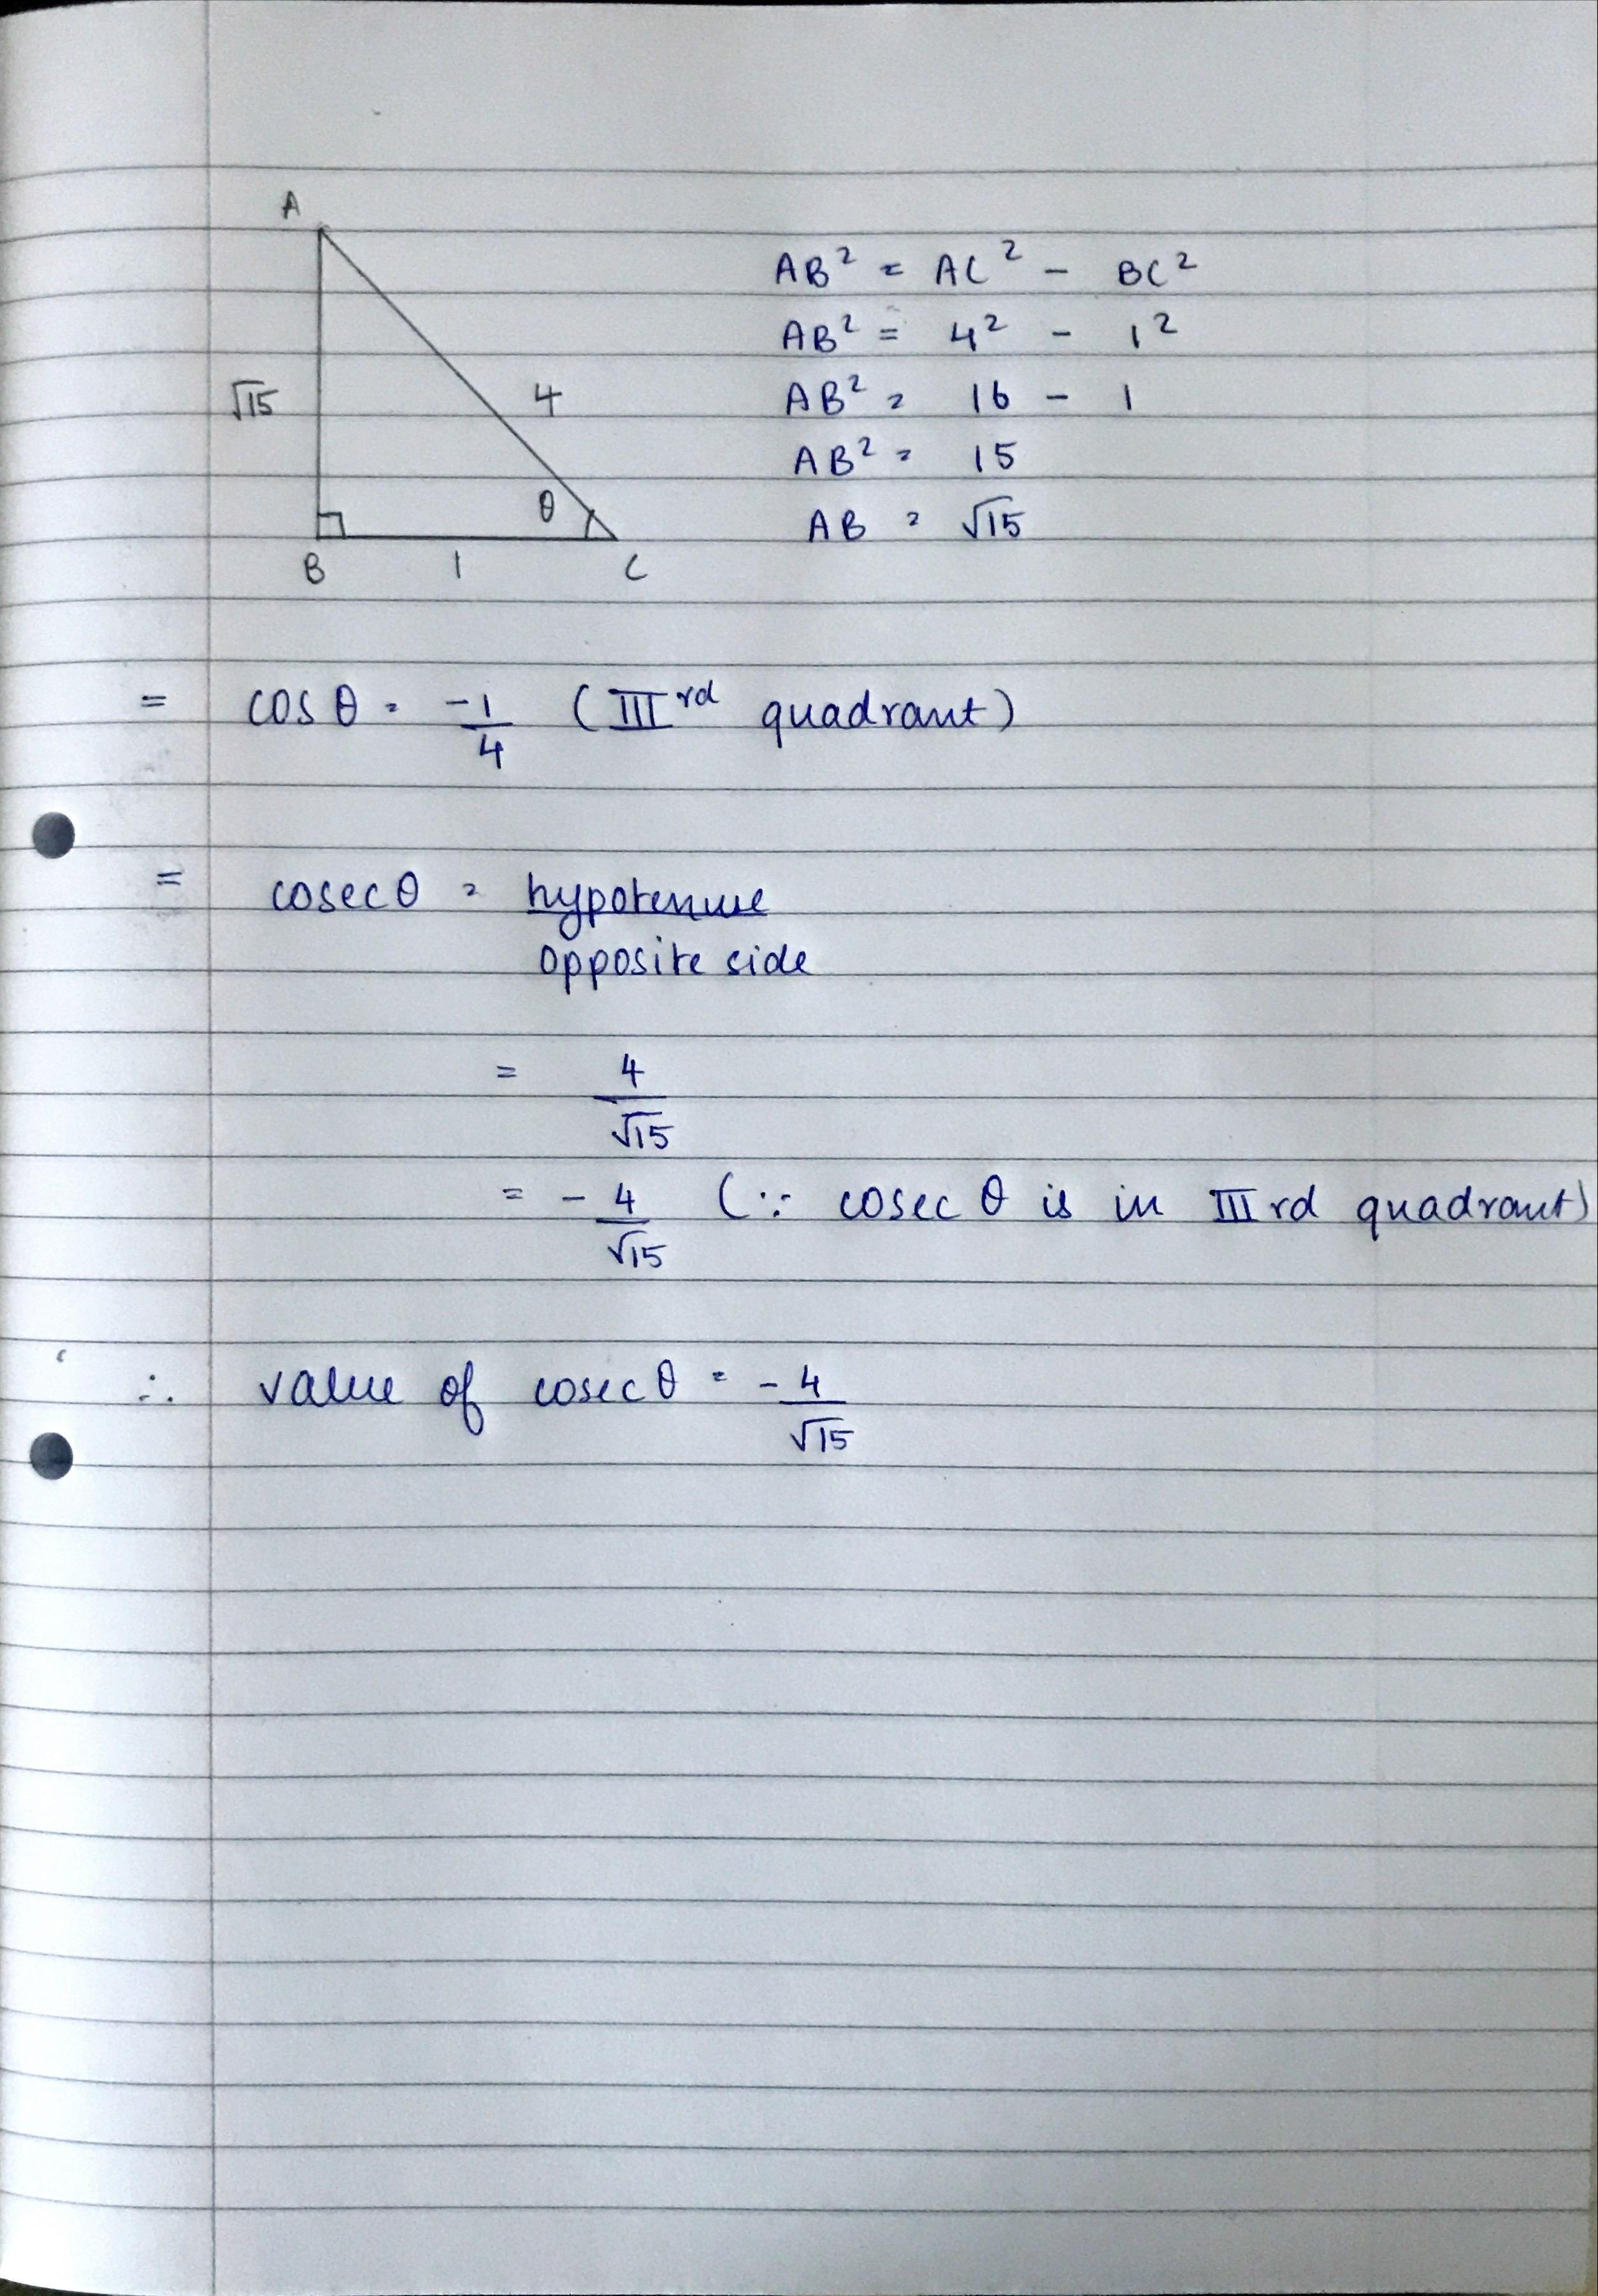 A
AB² = AC² - BC²
AB² = 4² - 1²
√15 4 AB² = 16 - 1
AB² = 15
θ AB = √15
B 1 C
= cos θ = -1/4 (IIIrd quadrant)
= cosec θ = hypotenuse
opposite side
= 4/√15
= - 4/√15 (∵ cosec θ is in IIIrd quadrant)
∴ value of cosec θ = - 4/√15